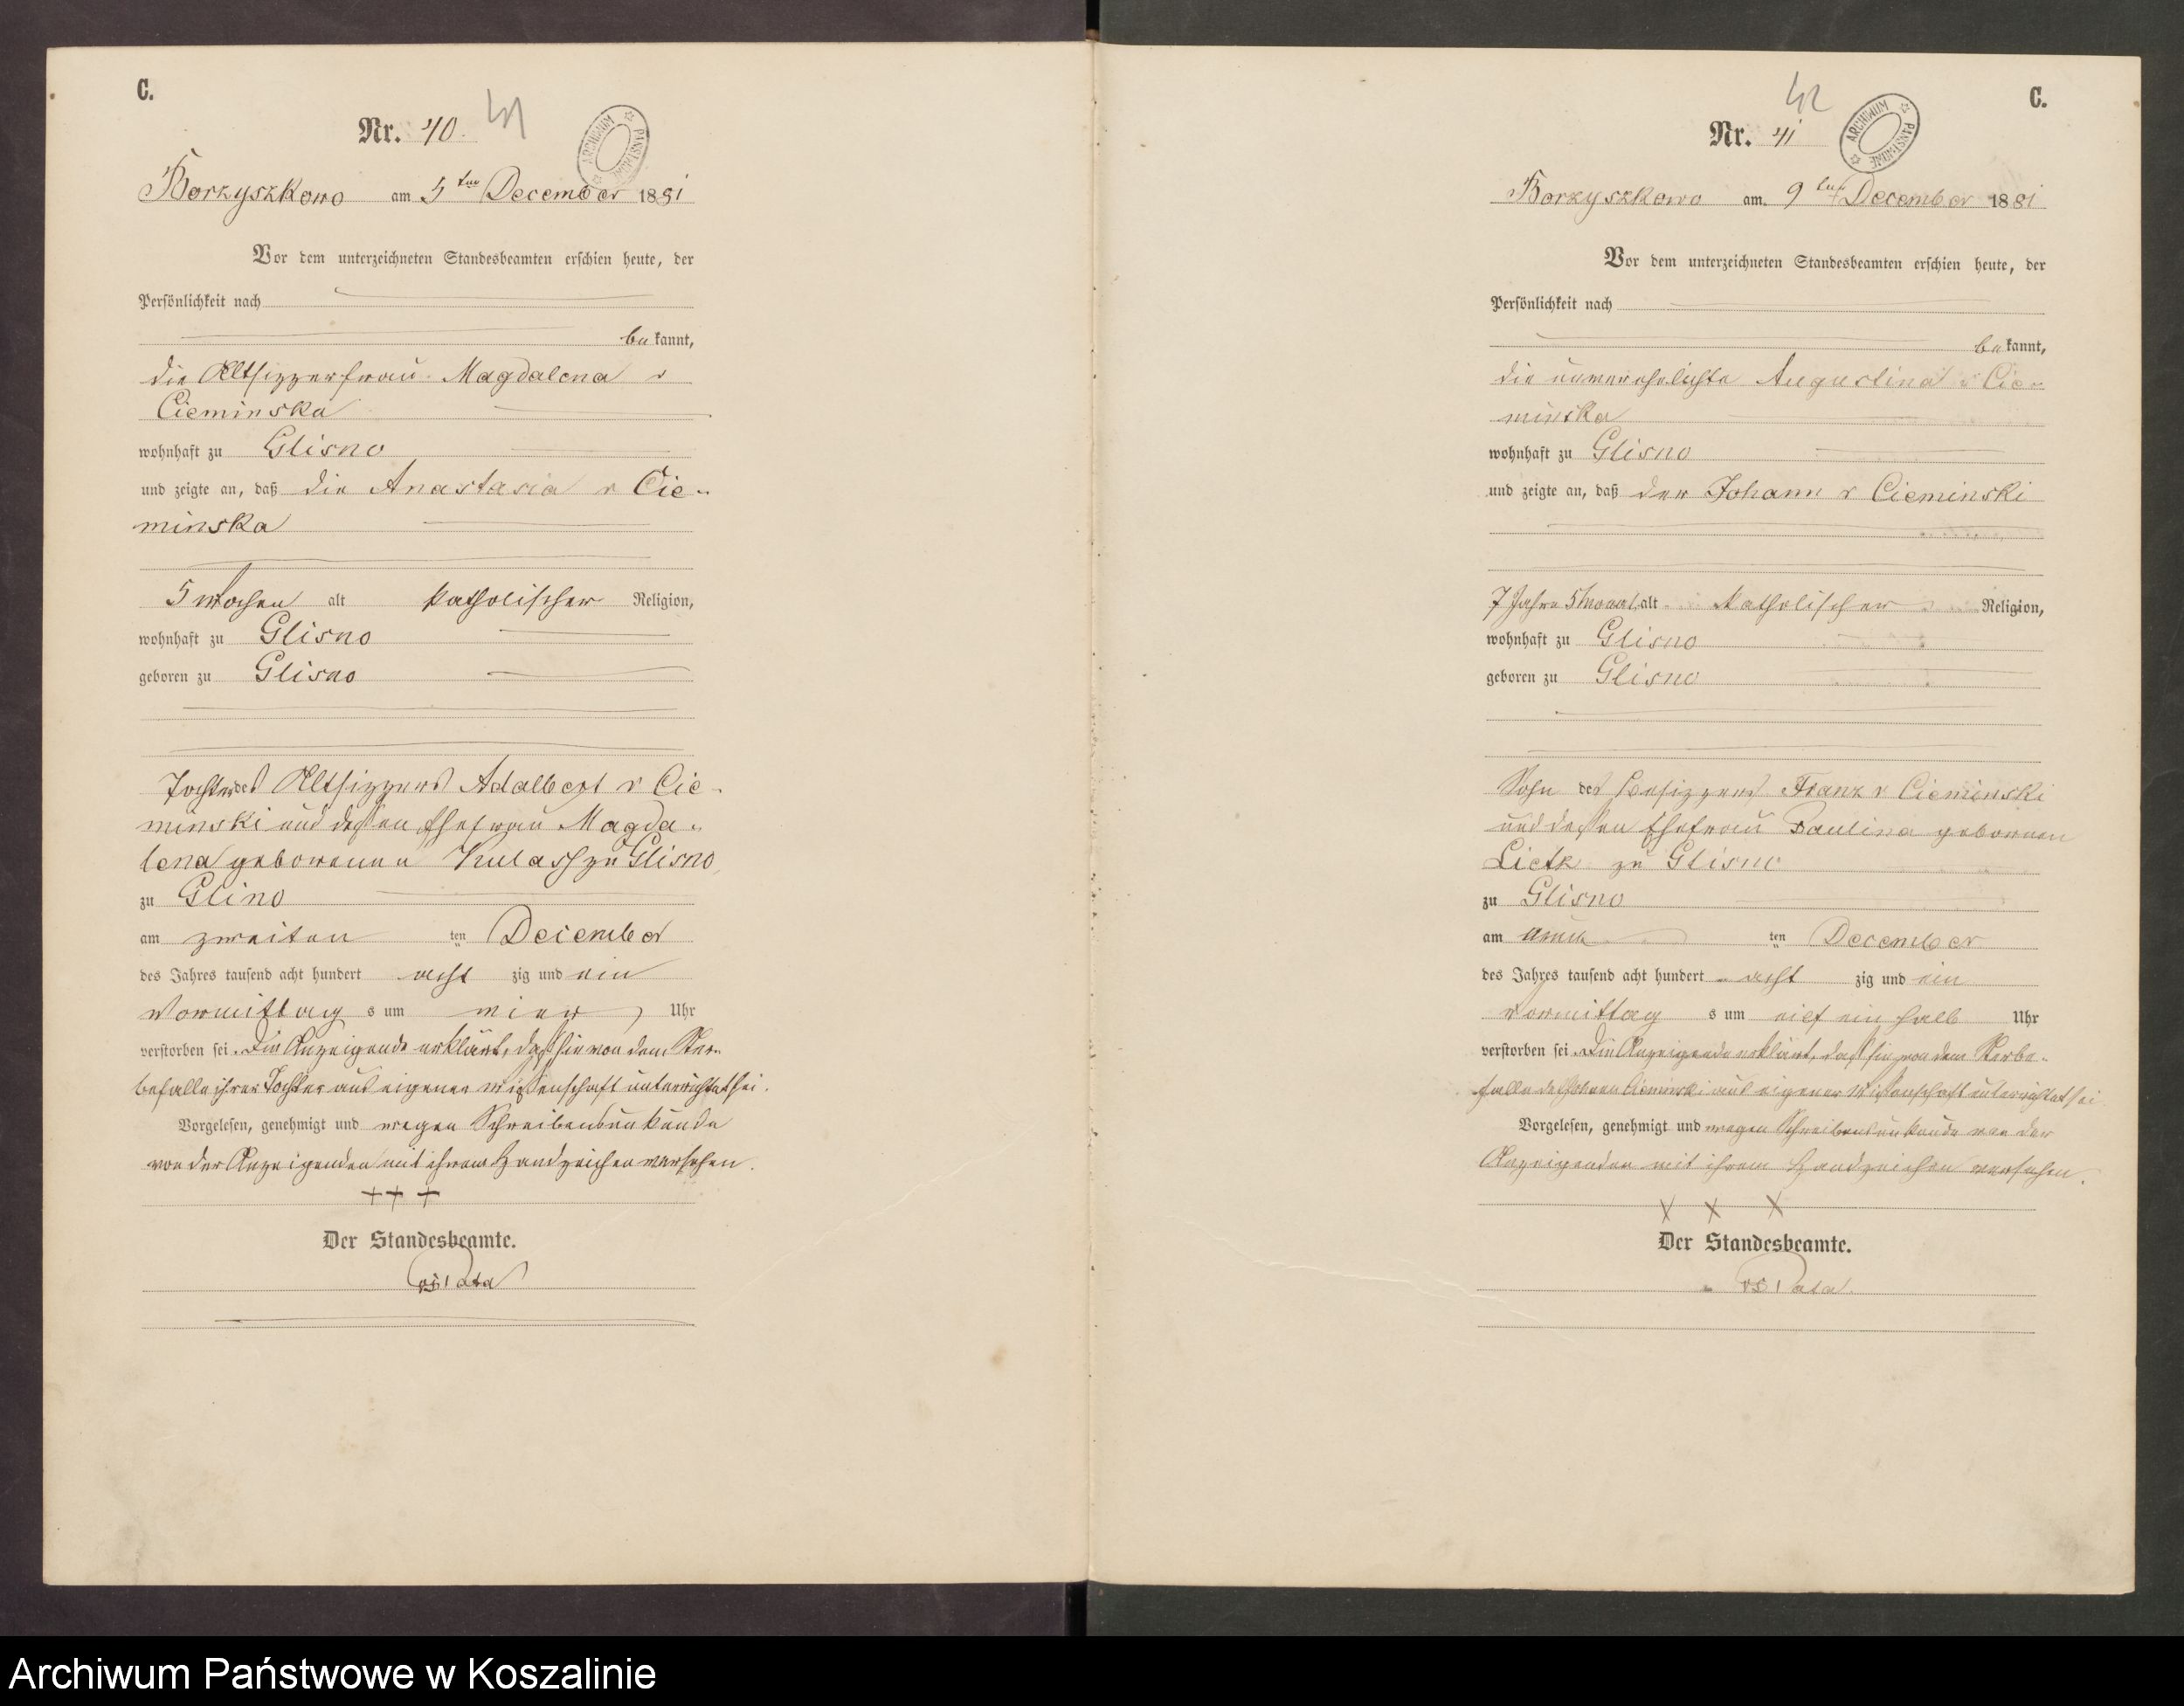 C.
Nr. 40. 41
ARCHIWUM PAŃSTWOWE
Borzyszkowo am 5ten December 1881
Vor dem unterzeichneten Standesbeamten erschien heute, der
Persönlichkeit nach
bekannt,
die Altsitzerfrau Magdalena v
Cieminska
wohnhaft zu Glisno
und zeigte an, daß die Anastasia v Cie-
minska
5 Wochen alt katholischer Religion,
wohnhaft zu Glisno
geboren zu Glisno
Tochter des Altsitzers Adalbert v Cie-
minski und dessen Ehefrau Magda-
lena geborenen Kulass zu Glisno
zu Glino
am zweiten ten December
des Jahres tausend acht hundert acht zig und ein
Vormittag s um vier Uhr
verstorben sei. Die Anzeigende erklärt, daß sie von dem Ster-
befalle ihrer Tochter aus eigener Wissenschaft unterrichtet sei.
Vorgelesen, genehmigt und wegen Schreibensunkunde
von der Anzeigenden mit ihrem Handzeichen versehen.
+++
Der Standesbeamte.
C.
42
Nr. 41
ARCHIWUM PAŃSTWOWE
Borzyszkowo am 9ten December 1881
Vor dem unterzeichneten Standesbeamten erschien heute, der
Persönlichkeit nach
bekannt,
die unverehelichte Augustina v Cie-
minska
wohnhaft zu Glisno
und zeigte an, daß der Johann v Cieminski
7 Jahre 5 Monat alt katholischer Religion,
wohnhaft zu Glisno
geboren zu Glisno
Sohn des Besitzers Franz v Cieminski
und dessen Ehefrau Paulina geborenen
Lietz zu Glisno
zu Glisno
am ten December
des Jahres tausend acht hundert acht zig und ein
Vormittag s um eilf ein halb Uhr
verstorben sei. Die Anzeigende erklärt, daß sie von dem Sterbe-
falle des Johann Cieminski aus eigener Wissenschaft unterrichtet sei
Vorgelesen, genehmigt und wegen Schreibensunkunde von der
Anzeigenden mit ihrem Handzeichen versehen.
X X X
Der Standesbeamte.
Archiwum Państwowe w Koszalinie